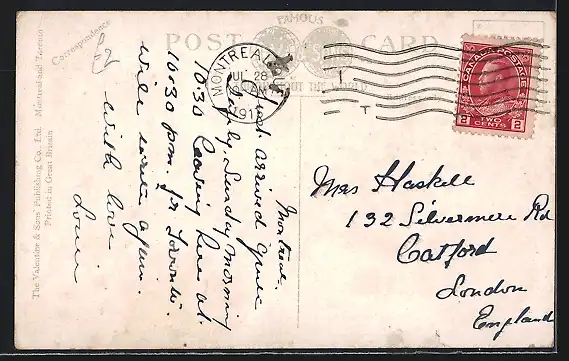 Correspondence
POST CARD
FAMOUS
THE WORLD
MONTREAL
JUL 28
AM
191
CANADA POSTAGE
2 2
TWO
CENTS
Montreal.
Just arrived quite
safely, Sunday morning
10.30 leaving here at
10.30 pm. for Toronto.
will write again.
with love
Mrs Haskell
132 Silvermere Rd
Catford
London
England
The Valentine & Sons' Publishing Co., Ltd. Montreal and Toronto
Printed in Great Britain